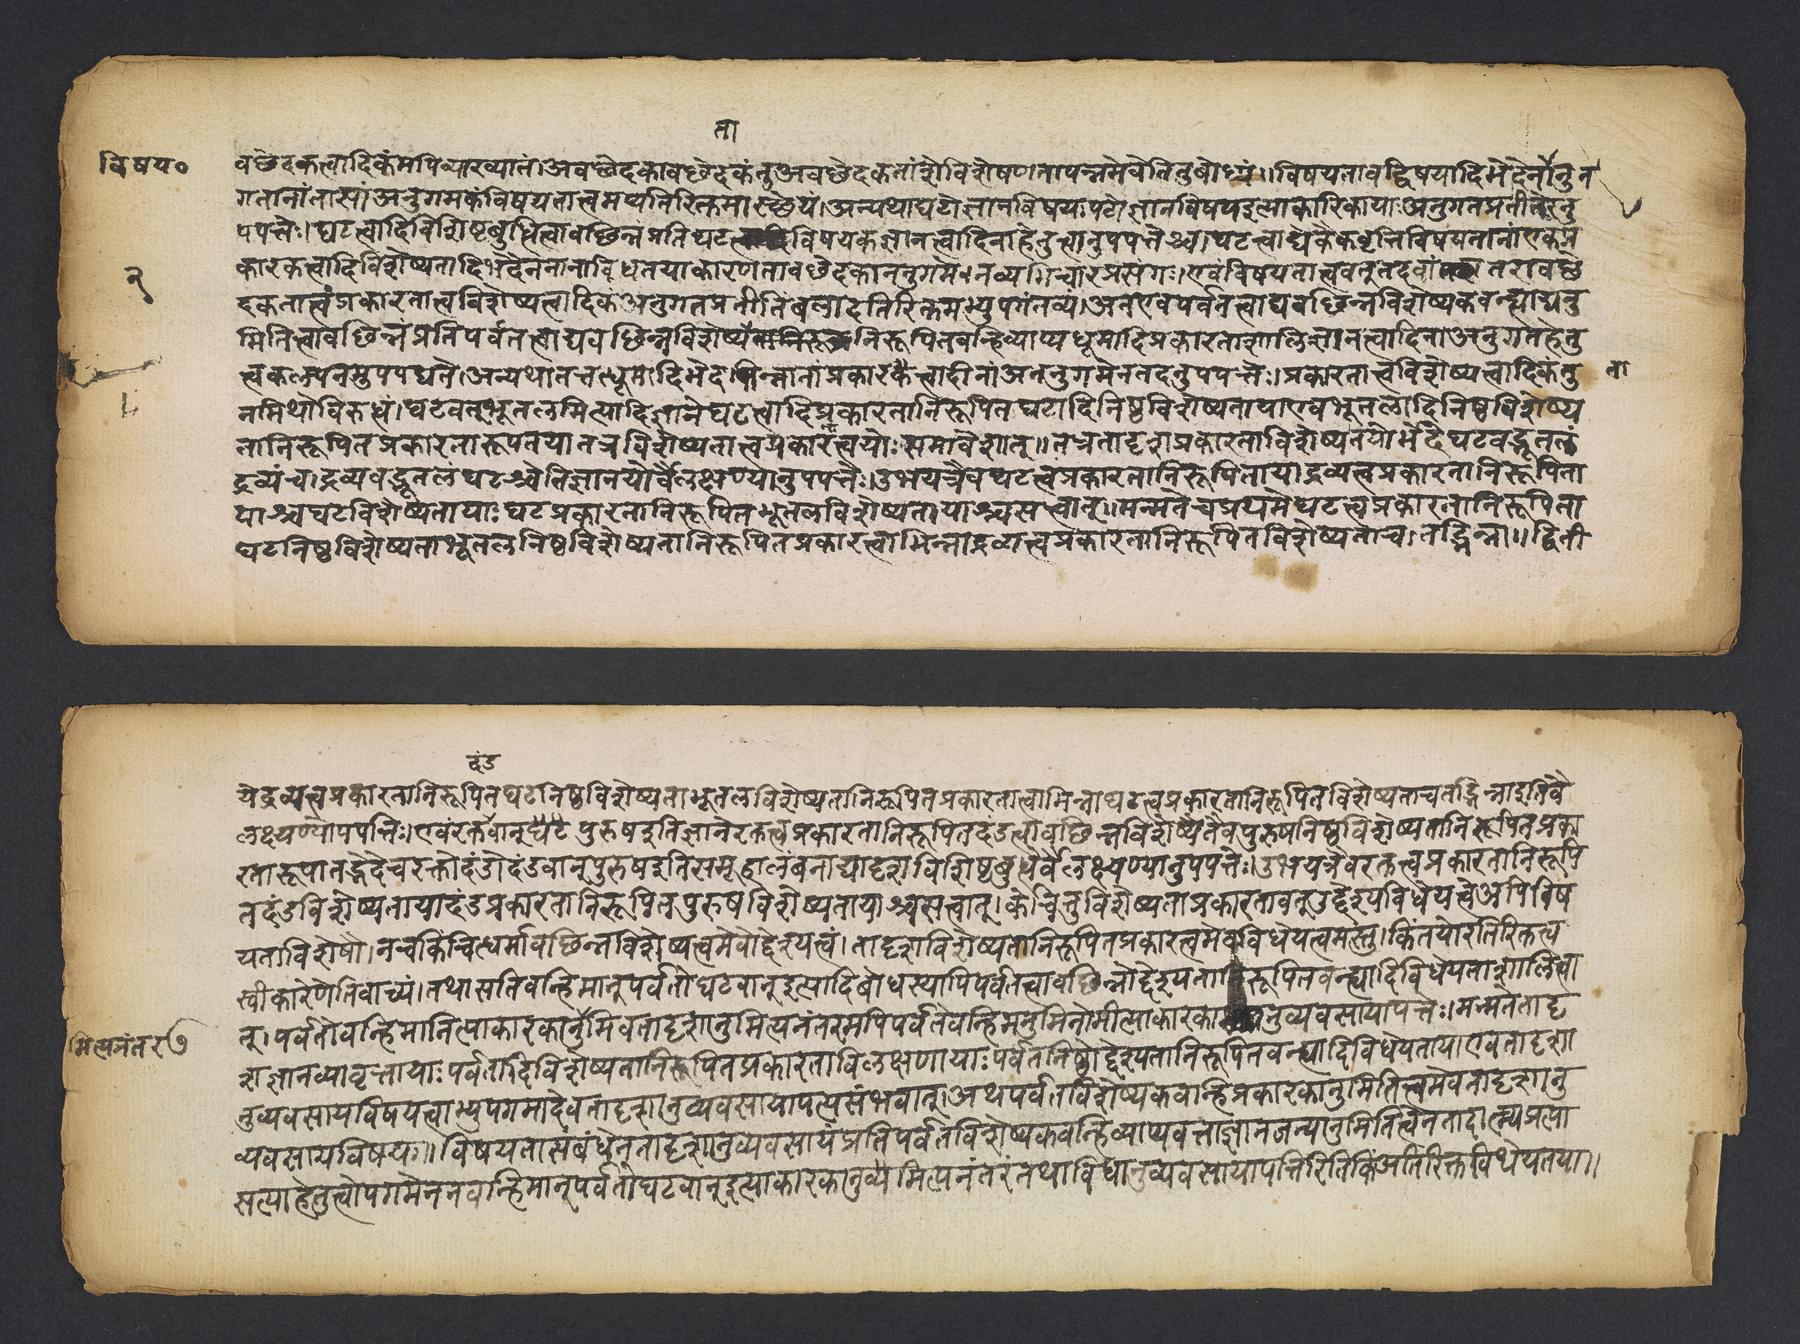 ता
विषय०
वछेदकत्वादिकमपिव्याख्यातं।अवछेदकावछेदकंतुअवछेदकतांशेविशेषणतापन्नमेवेतितुबोध्यं॥विषयतावद्विषयादिभेदेनानुग
गतानांतासांअनुगमकंविषयतात्वमप्यतिरिक्तमास्थेयं।अन्यथाघटोज्ञानविषयःपटोज्ञानविषयइत्याकारिकायाःअनुगतप्रतीतेरनु
पपत्तेः।घटत्वादिविशिष्टबुद्धित्वावछिन्नप्रतिघटत्वादिविषयकज्ञानत्वादिनाहेतुत्वानुपपत्तेश्च।घटत्वाद्येकैकवृत्तिविषयतानांएकप्र
२
कारकत्वादिविशेष्यतादिभेदेननानाविधतयाकारणतावछेदकाननुगमेनव्यभिचारप्रसंगः।एवंविषयतात्ववत्तद्वांतरावछे
दकतात्वंप्रकारतात्वविशेष्यत्वादिकंअनुगतप्रतीतिबलादतिरिक्तमभ्युपगंतव्यं।अतएवपर्वतत्वाद्यवछिन्नविशेष्यकवन्ह्याद्यनु
मितित्वावछिन्नंप्रतिपर्वतत्वाद्यवछिन्नविशेष्यतानिरूपितवन्हिव्याप्यधूमादिप्रकारताशालिज्ञानत्वादिनाअनुगतहेतु
त्वकल्पनस्तुपपद्यते।अन्यथातत्तद्धूमादिभेदभिन्नानांप्रकारकत्वादीनांअननुगमेनतदनुपपत्तेः।प्रकारतात्वविशेष्यत्वादिकंतु
ता
नमिथोविरुद्धं।घटवद्भूतलमित्यादिज्ञानेघटत्वादिप्रकारतानिरूपितघटादिनिष्ठविशेष्यतायाएवभूतलादिनिष्ठविशेष्य
तानिरूपितप्रकारतारूपतयातत्रविशेष्यतात्वप्रकारत्वयोःसमावेशात्॥तत्रतादृशप्रकारताविशेष्यतयोर्भेदेघटवद्भूतलं
द्रव्यंच।द्रव्यवद्भूतलंघटश्चेतिज्ञानयोर्वैलक्षण्यानुपपत्तेः।उभयत्रैवघटत्वप्रकारतानिरूपिताया।द्रव्यत्वप्रकारतानिरूपिता
याश्चघटविशेष्यतायाःघटप्रकारतानिरूपितभूतलविशेष्यतायाश्चसत्वात्।मन्मतेचप्रथमेघटत्वप्रकारतानिरूपिता
घटनिष्ठविशेष्यताभूतलनिष्ठविशेष्यतानिरूपितप्रकारत्वाभिन्नाद्रव्यत्वप्रकारतानिरूपितविशेष्यताच।तद्भिन्ना॥द्विती
दंड
येद्रव्यत्वप्रकारतानिरूपितघटनिष्ठविशेष्यताभूतलविशेष्यतानिरूपितप्रकारतात्वाभिन्नाघटत्वप्रकारतानिरूपितविशेष्यताचतद्भिन्नाइतिवै
लक्षण्योपपत्तिः।एवंरक्तवान्पुरुषइतिज्ञानेरक्तत्वप्रकारतानिरूपितदंडत्वावछिन्नविशेष्यतैवपुरुषनिष्ठविशेष्यतानिरूपितप्रका
रतारूपातद्भेदेचरक्तोदंडोदंडवान्पुरुषइतिसमूहालंबनाद्यादृशविशिष्टबुद्धेर्वैलक्षण्यानुपपत्तेः।उभयत्रैवरक्तत्वप्रकारतानिरूपि
तदंडविशेष्यतायादंडप्रकारतानिरूपितपुरुषविशेष्यतायाश्चसत्वात्।केचित्तुविशेष्यताप्रकारतावत्उद्देश्यविधेयत्वेअपिविष
यताविशेषौ।नचकिंचिद्धर्मावछिन्नविशेष्यत्वमेवोद्देश्यत्वं।तादृशविशेष्यतानिरूपितप्रकारत्वमेवविधेयत्वमस्तु।किंतयोरतिरिक्तत्व
स्वीकारेणेतिवाच्यं।तथासतिवन्हिमान्पर्वतोघटवान्इत्यादिबोधस्यापिपर्वतत्वावछिन्नोद्देश्यतानिरूपितवन्ह्यादिविधेयताशालित्वा
त्।पर्वतोवन्हिमानित्याकारकानुमिवतादृशानुमित्यनंतरमपिपर्वतेवन्हिमनुमिनोमीत्याकारकानुव्यवसायापत्तेः।मन्मतेतादृ
मित्यनंतर७
शज्ञानव्यावृत्तायाःपर्वतादिविशेष्यतानिरूपितप्रकारताविलक्षणायाःपर्वतनिष्ठोद्देश्यतानिरूपितवन्ह्यादिविधेयतायाएवतादृशा
नुव्यवसायविषयत्वाभ्युपगमादेवतादृशानुव्यवसायापत्त्यसंभवात्।अथपर्वतविशेष्यकवन्हिप्रकारकानुमितित्वमेवतादृशानु
व्यवसायविषयः॥विषयतासंबंधेनतादृशानुव्यवसायंप्रतिपर्वतविशेष्यकवन्हिव्याप्यवत्ताज्ञानजन्यानुमितित्वेनतादात्म्यप्रत्या
सत्याहेतुत्वोपगमेननवन्हिमान्पर्वतोघटवान्इत्याकारकानुव्यमित्यनंतरंतथाविधानुव्यवसायापत्तिरितिकिंअतिरिक्तविधेयतया॥